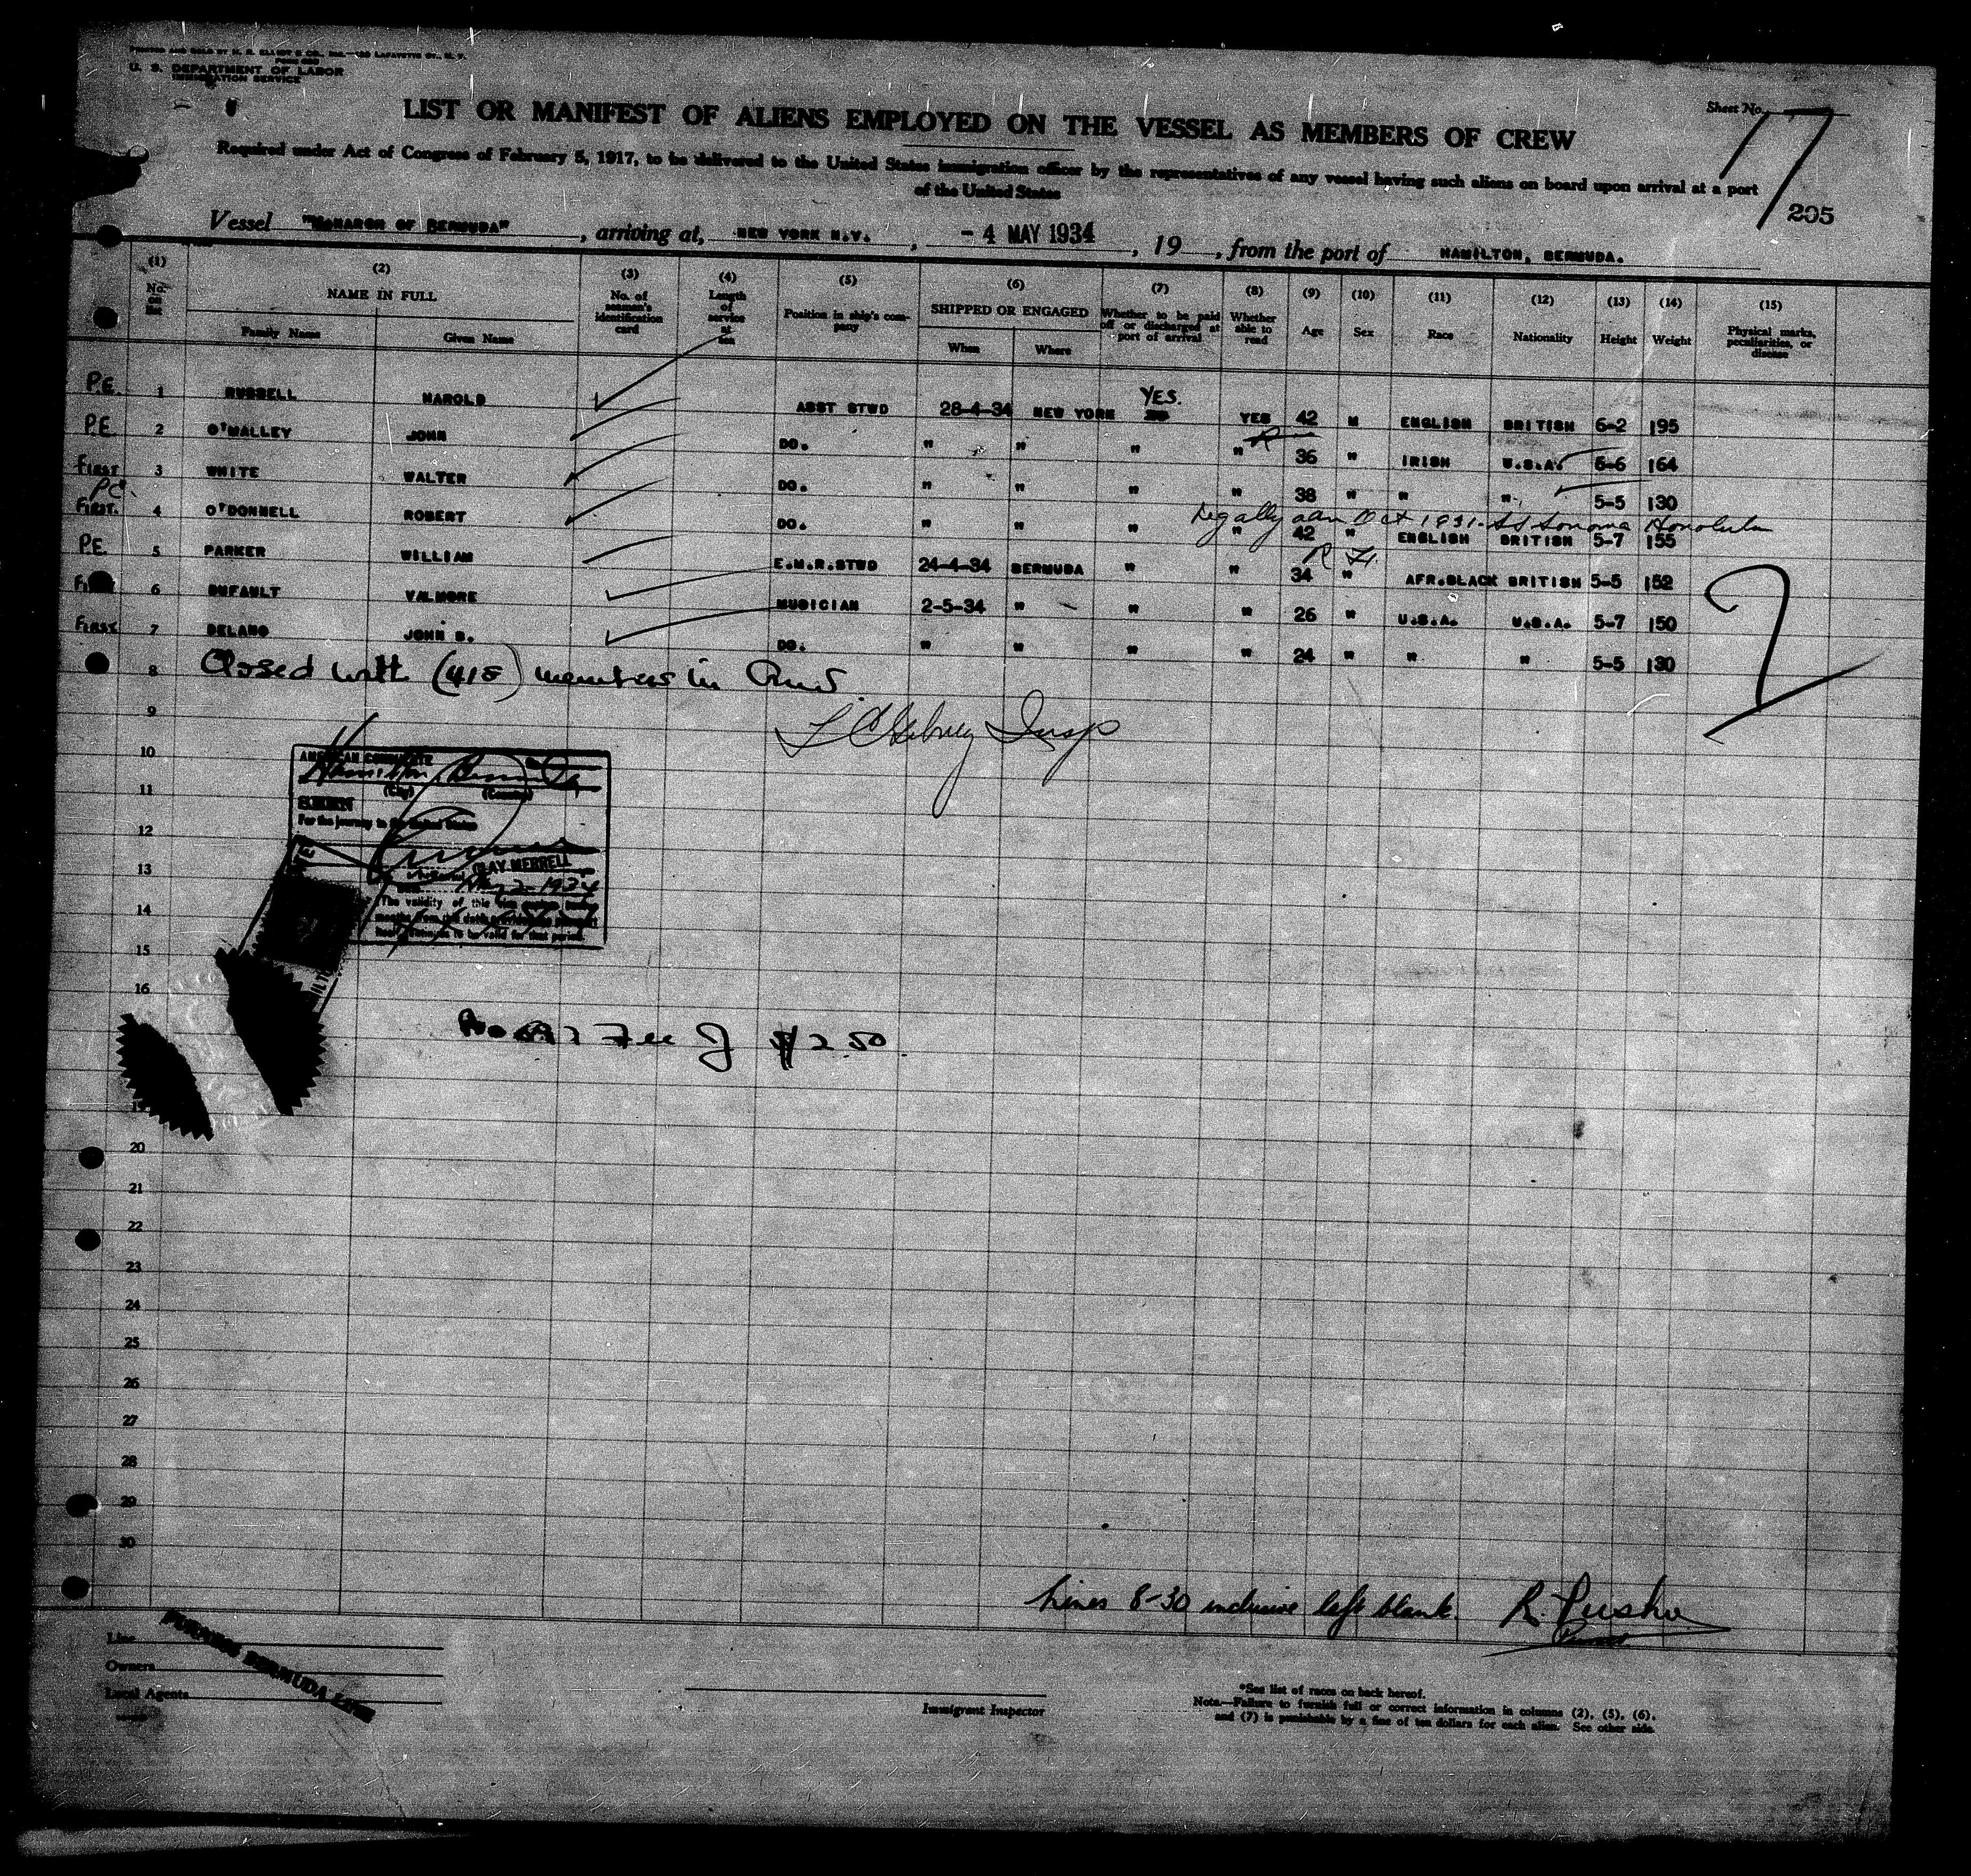 PRINTED AND SOLD BY M. B. ELLIOT & CO., INC.—129 LAFAYETTE ST., N. Y.
U. S. DEPARTMENT OF LABOR
IMMIGRATION SERVICE
Sheet No. 17
LIST OR MANIFEST OF ALIENS EMPLOYED ON THE VESSEL AS MEMBERS OF CREW
Required under Act of Congress of February 5, 1917, to be delivered to the United States immigration officer by the representatives of any vessel having such aliens on board upon arrival at a port
of the United States
205
Vessel "MONARCH OF BERMUDA", arriving at, NEW YORK N.Y., - 4 MAY 1934, 19, from the port of HAMILTON, BERMUDA.
(1) (2) (3) (4) (5) (6) (7) (8) (9) (10) (11) (12) (13) (14) (15)
No. on list NAME IN FULL Family Name Given Name No. of seaman's identification card Length of service at sea Position in ship's company SHIPPED OR ENGAGED When Where Whether to be paid off or discharged at port of arrival Whether able to read Age Sex Race Nationality Height Weight Physical marks, peculiarities, or disease
P.E. 1 RUSSELL HAROLD ASST STWD 28-4-34 NEW YORK YES. YES 42 M ENGLISH BRITISH 6-2 195
P.E. 2 O'MALLEY JOHN DO. " " " " 36 " IRISH U.S.A. 5-6 164
First 3 WHITE WALTER DO. " " " " 38 " " " 5-5 130
PC. Legally adm Oct 1931. SS Sonoma Honolulu
First. 4 O'DONNELL ROBERT DO. " " " " 42 " ENGLISH BRITISH 5-7 155
P.E. 5 PARKER WILLIAM E.M.R.STWD 24-4-34 BERMUDA " " 34 " AFR.BLACK BRITISH 5-5 152
6 DUFAULT VALMORE MUSICIAN 2-5-34 " " " 26 " U.S.A. U.S.A. 5-7 150
First 7 DELANO JOHN B. DO. " " " " 24 " " " 5-5 130
8 Closed with (418) members in
9
10
11
12
13
14
15
16
20
21
22
23
24
25
26
27
28
29
30
AMERICAN CONSULATE
Hamilton, Bermuda
(City) (Country)
SEEN
For the journey to the United States
CLAY MERRELL
May 2 1934
The validity of this
Fee $2.50
Lines 8-30 inclusive left blank.
Purser
Line
Owners
Local Agents
FURNESS BERMUDA LINE
Immigrant Inspector
*See list of races on back hereof.
Note.—Failure to furnish full or correct information in columns (2), (5), (6),
and (7) is punishable by a fine of ten dollars for each alien. See other side.